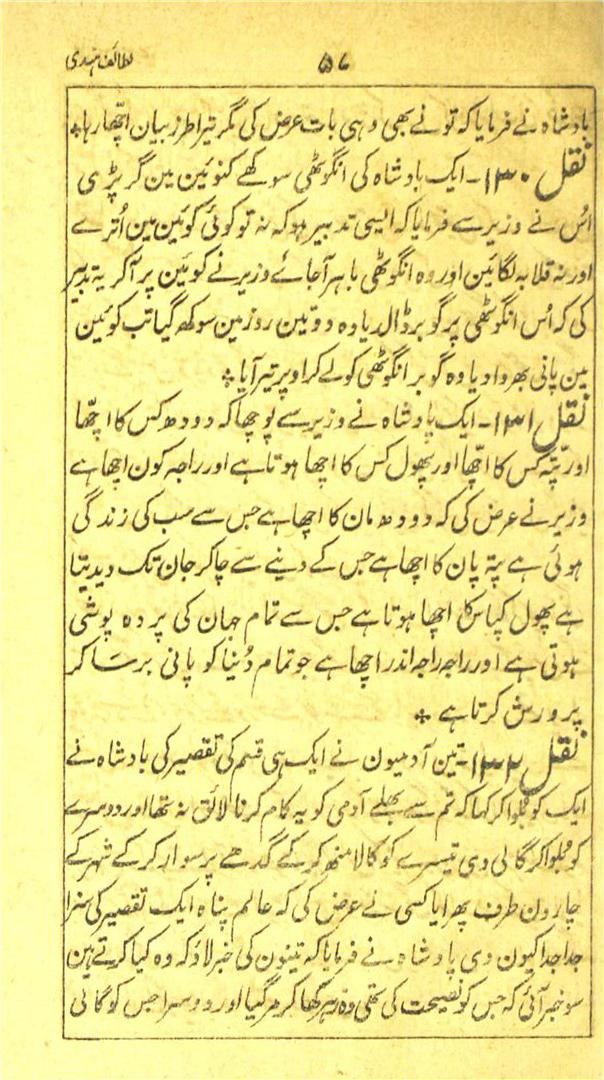 ۵۷ لطائف ہندی
بادشاہ نے فرمایا کہ تونے بھی وہی بات عرض کی مگر تیرا طرز بیان اچھا رہا ٭
نقل ۱۳۰۔ ایک بادشاہ کی انگوٹھی سوکھے کنوئین مین گر پڑی
اُس نے وزیر سے فرمایا کہ ایسی تدبیر ہو کہ نہ تو کوئی کوئین مین اُترے
اور نہ قلابہ لگائین اور وہ انگوٹھی باہر آجائے وزیر نے کوئین پر آکر یہ تدبیر
کی کہ اُس انگوٹھی پر گوبر ڈالدیا وہ دو تین روز مین سوکھ گیا تب کوئین
مین پانی بھروا دیا وہ گوبر انگوٹھی کو لے کر اوپر تیر آیا ٭
نقل ۱۳۱۔ ایک بادشاہ نے وزیر سے پوچھا کہ دودھ کس کا اچھا
اور پتّہ کس کا اچھا اور پھول کس کا اچھا ہوتا ہے اور راجہ کون اچھا ہے
وزیر نے عرض کی کہ دودھ مان کا اچھا ہے جس سے سب کی زندگی
ہوئی ہے پتہ پان کا اچھا ہے جس کے دینے سے چاکر جان تک دیدیتا
ہے پھول کپاس کا اچھا ہوتا ہے جس سے تمام جہان کی پردہ پوشی
ہوتی ہے اور راجہ راجہ اندر اچھا ہے جو تمام دُنیا کو پانی برسا کر
پرورش کرتا ہے ٭
نقل ۱۳۲۔ تین آدمیون نے ایک ہی قسم کی تقصیر کی بادشاہ نے
ایک کو بُلوا کر کہا کہ تم سے بھلے آدمی کو یہ کام کرنا لائق نہ تھا اور دوسرے
کو بُلوا کر گالی دی تیسرے کو کالا منھ کر کے گدھے پر سوار کر کے شہر کے
چارون طرف پھرایا کسی نے عرض کی کہ عالم پناہ ایک تقصیر کی سزا
جدا جدا کیون دی بادشاہ نے فرمایا کہ تینون کی خبر لاؤ کہ وہ کیا کرتے ہین
سو خبر آئی کہ جس کو نصیحت کی تھی وہ زہر کھا کر مر گیا اور دوسرا جس کو گالی